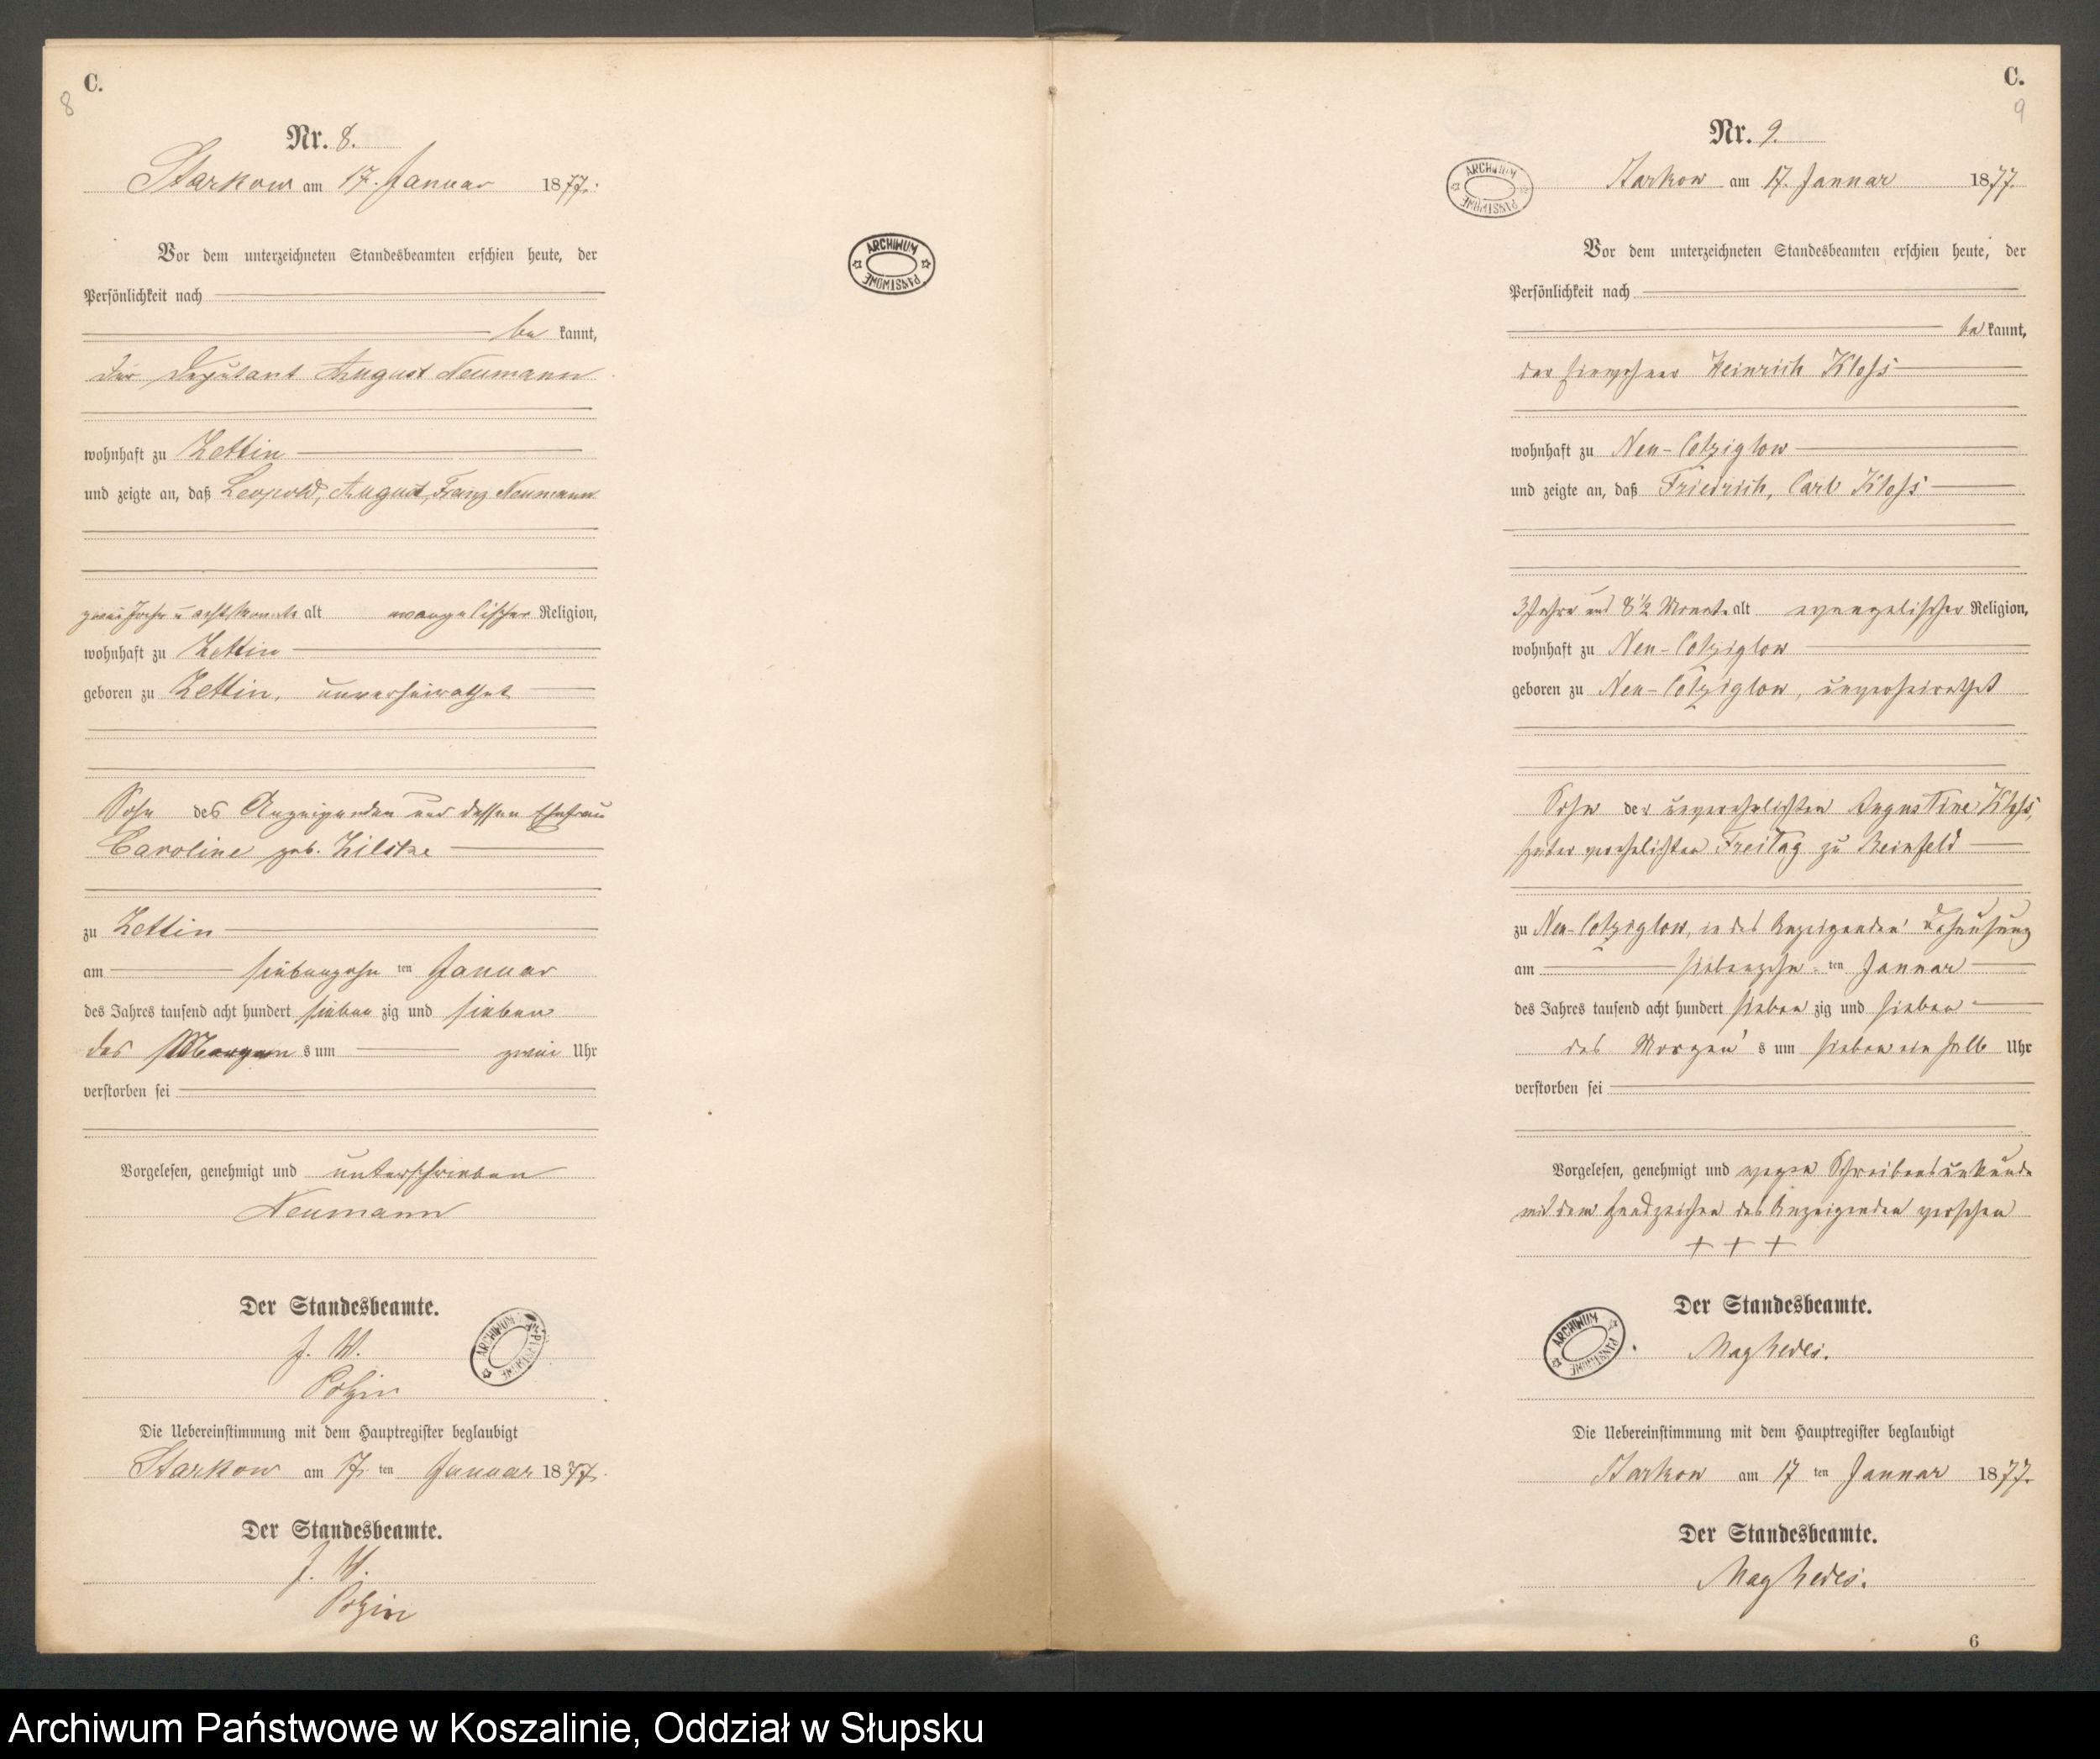 C.
8
Nr. 8.
Starkow am 17. Januar 1877.
Vor dem unterzeichneten Standesbeamten erschien heute, der
Persönlichkeit nach
be kannt,
der Deputant August Neumann
wohnhaft zu Zettin
und zeigte an, daß Leopold, August, Franz Neumann
zwei Jahr u acht Monate alt evangelischer Religion,
wohnhaft zu Zettin
geboren zu Zettin, unverheirathet
Sohn des Anzeigenden und dessen Ehefrau
Caroline geb. Zilske
zu Zettin
am siebenzehn ten Januar
des Jahres tausend acht hundert sieben zig und sieben
des Morgen s um zwei Uhr
verstorben sei
Vorgelesen, genehmigt und unterschrieben
Neumann
Der Standesbeamte.
J. V.
Polzin
Die Uebereinstimmung mit dem Hauptregister beglaubigt
Starkow am 17. ten Januar 1877.
Der Standesbeamte.
J. V.
Polzin
ARCHIWUM PAŃSTWOWE
C.
9
Nr. 9.
Starkow am 17. Januar 1877.
Vor dem unterzeichneten Standesbeamten erschien heute, der
Persönlichkeit nach
be kannt,
der Einwohner Heinrich Kloß
wohnhaft zu Neu-Cotziglow
und zeigte an, daß Friedrich, Carl Kloß
3 Jahre und 8½ Monate alt evangelischer Religion,
wohnhaft zu Neu-Cotziglow
geboren zu Neu-Cotziglow, unverheirathet
Sohn der unverehelichten Augustine Kloß,
später verehelichten Freitag zu Reinfeld
zu Neu-Cotziglow, in des Anzeigenden Behausung
am siebenzehn ten Januar
des Jahres tausend acht hundert sieben zig und sieben
des Morgen s um sieben ein halb Uhr
verstorben sei
Vorgelesen, genehmigt und wegen Schreibensunkunde
mit dem Handzeichen des Anzeigenden versehen
+ + +
Der Standesbeamte.
Die Uebereinstimmung mit dem Hauptregister beglaubigt
Starkow am 17 ten Januar 1877.
Der Standesbeamte.
6
ARCHIWUM PAŃSTWOWE
ARCHIWUM PAŃSTWOWE
ARCHIWUM PAŃSTWOWE
Archiwum Państwowe w Koszalinie, Oddział w Słupsku